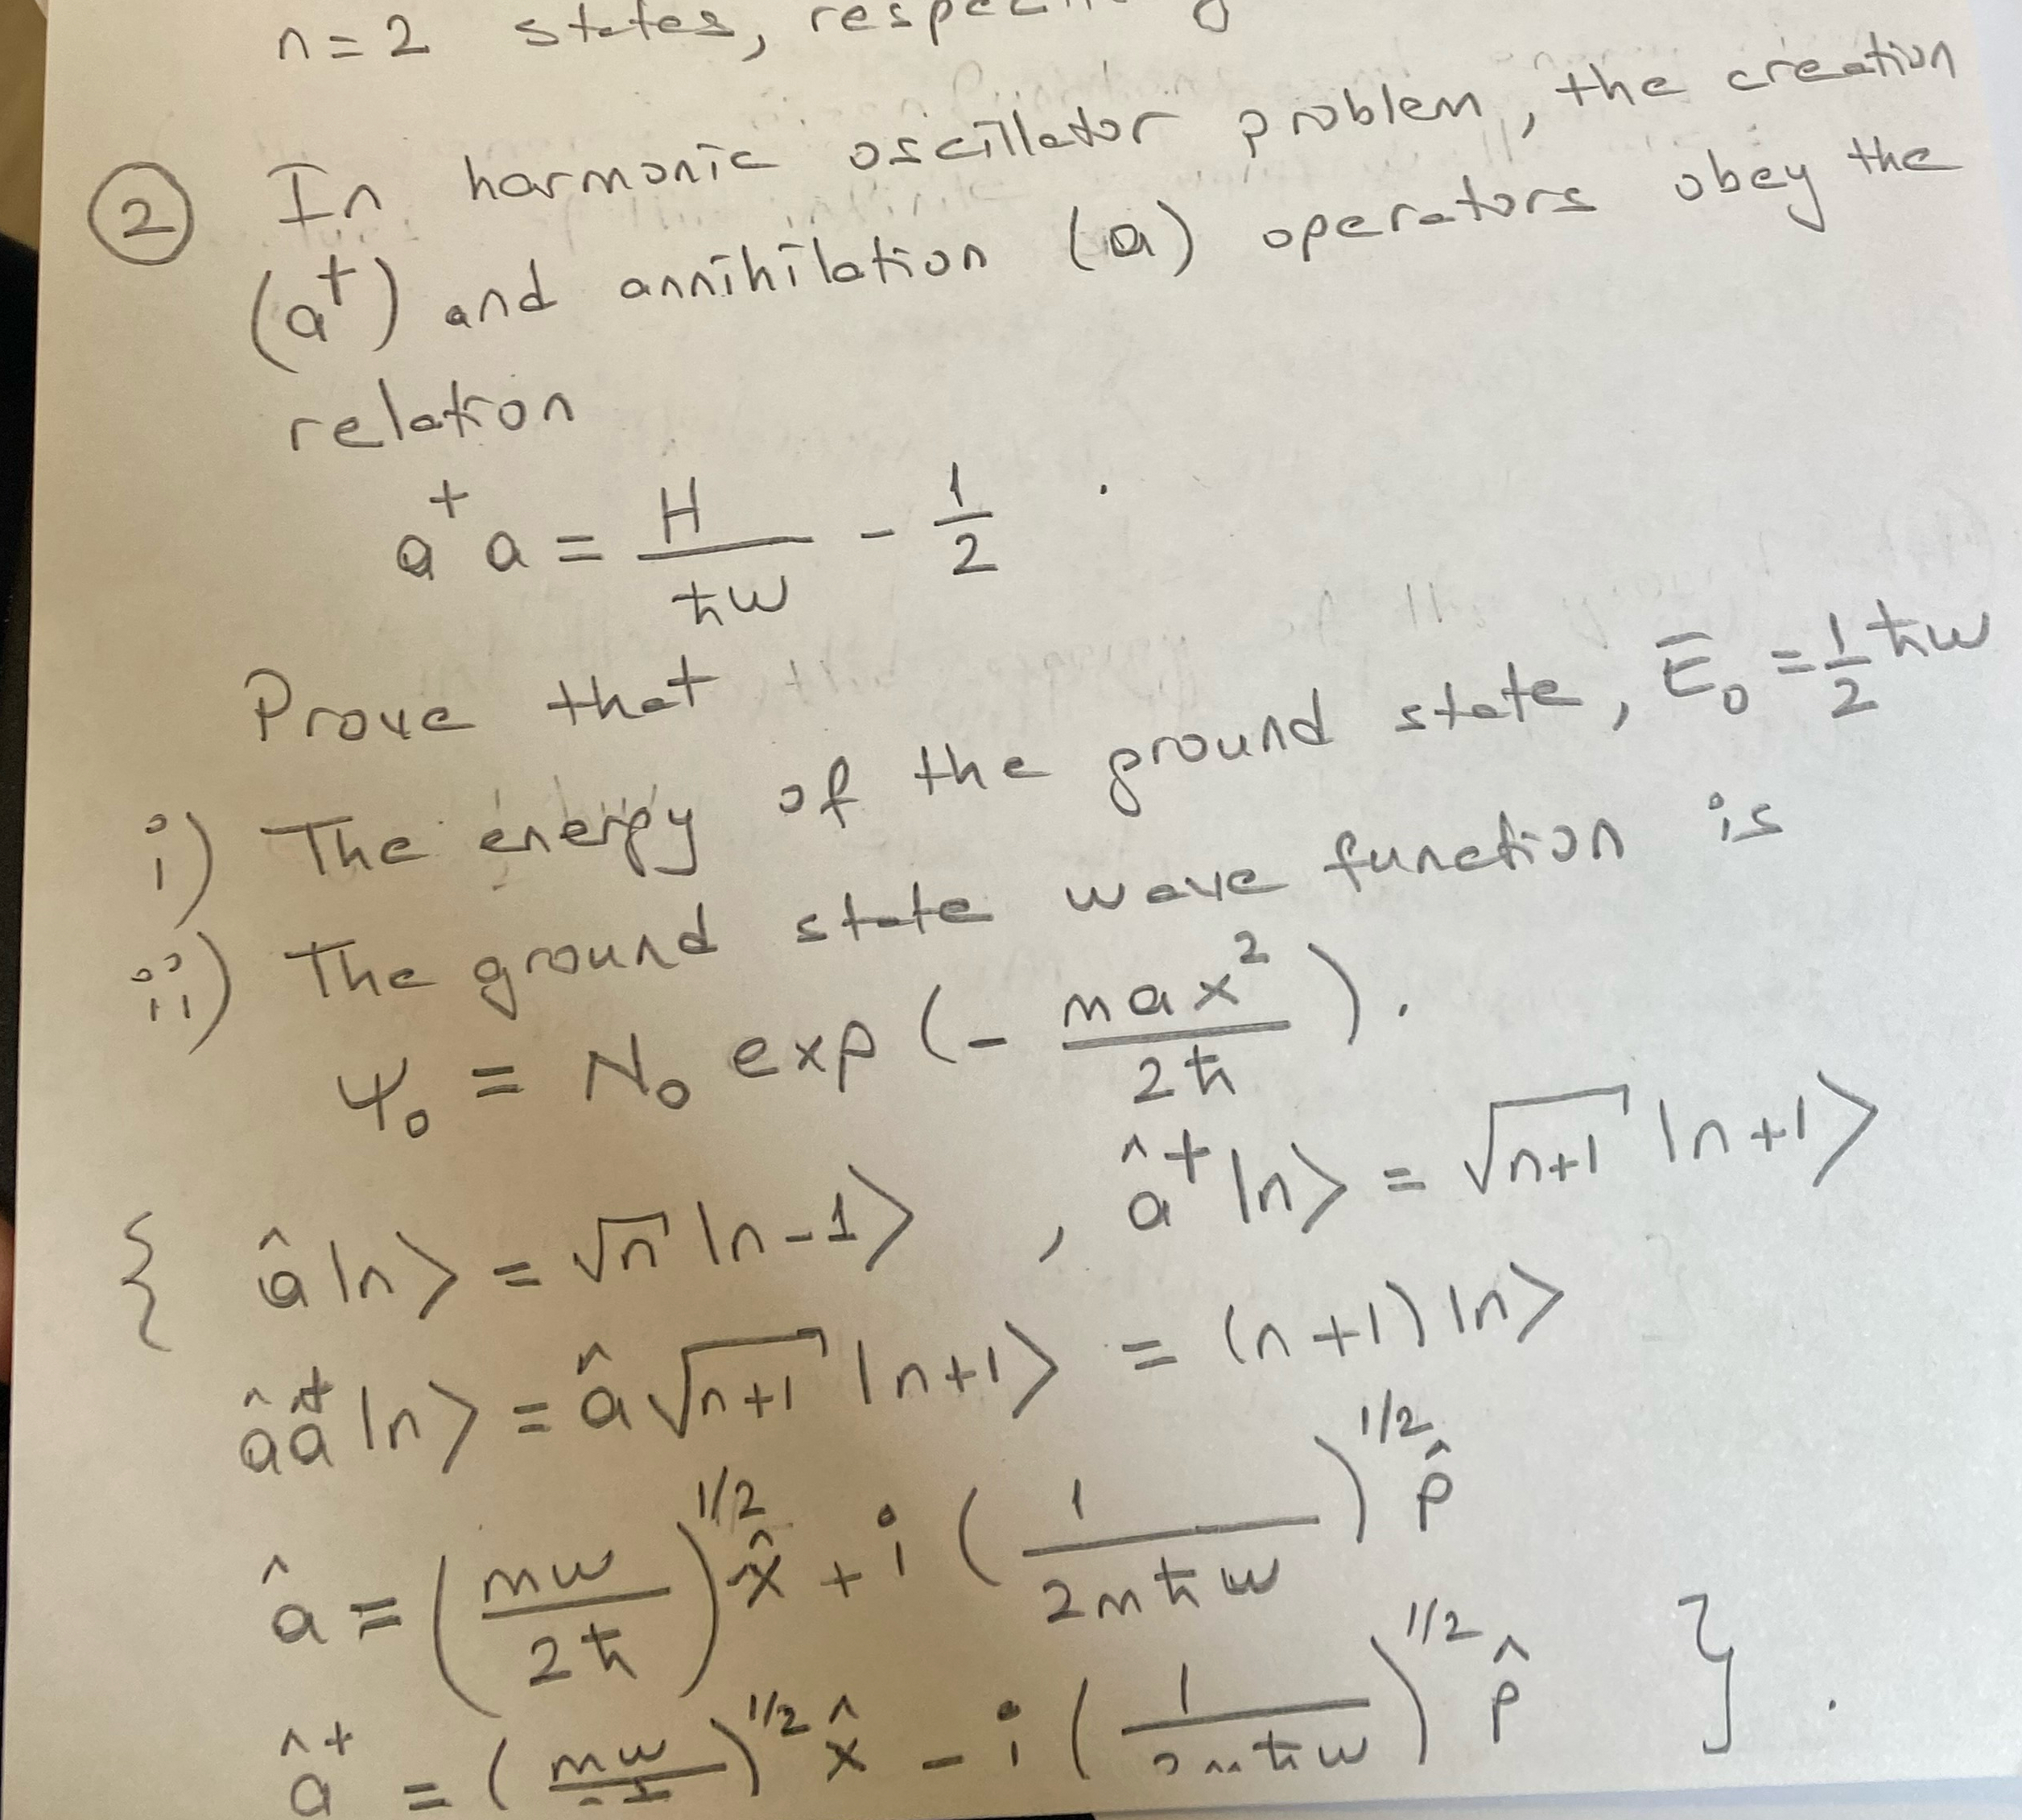 n=2 states,
② In harmonic oscillator problem, the creation
(a⁺) and annihilation (a) operators obey the
relation
a⁺a = H/ħω - 1/2 .
Prove that
i) The energy of the ground state, E₀ = 1/2 ħω
ii) The ground state wave function is
Ψ₀ = N₀ exp(- max²/2ħ).
{ â|n> = √n |n-1> , â⁺|n> = √n+1 |n+1>
ââ⁺|n> = â√n+1 |n+1> = (n+1)|n>
â = (mω/2ħ)^1/2 x̂ + i (1/2mħω)^1/2 p̂
â⁺ = (mω/)^1/2 x̂ - i (1/2mħω)^1/2 p̂ } .